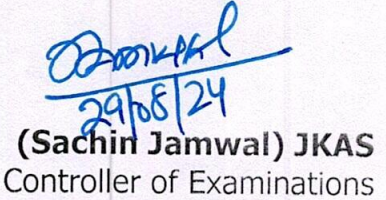 29/08/24
(Sachin Jamwal) JKAS
Controller of Examinations